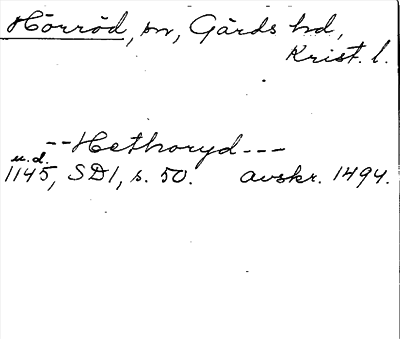 Hörröd, sn, Gärds hd,
Krist. l.
--Hethoryd---
u.d.
1145, SD1, s. 50. avskr. 1494.